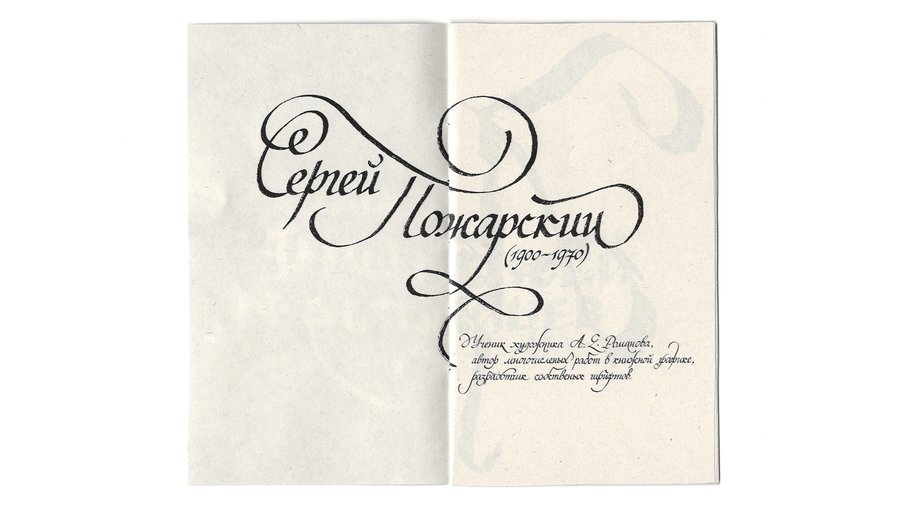 Сергей Пожарский
(1900–1970)
Ученик художника А. С. Романова,
автор многочисленых работ в книжной графике,
разработчик собственых шрифтов.